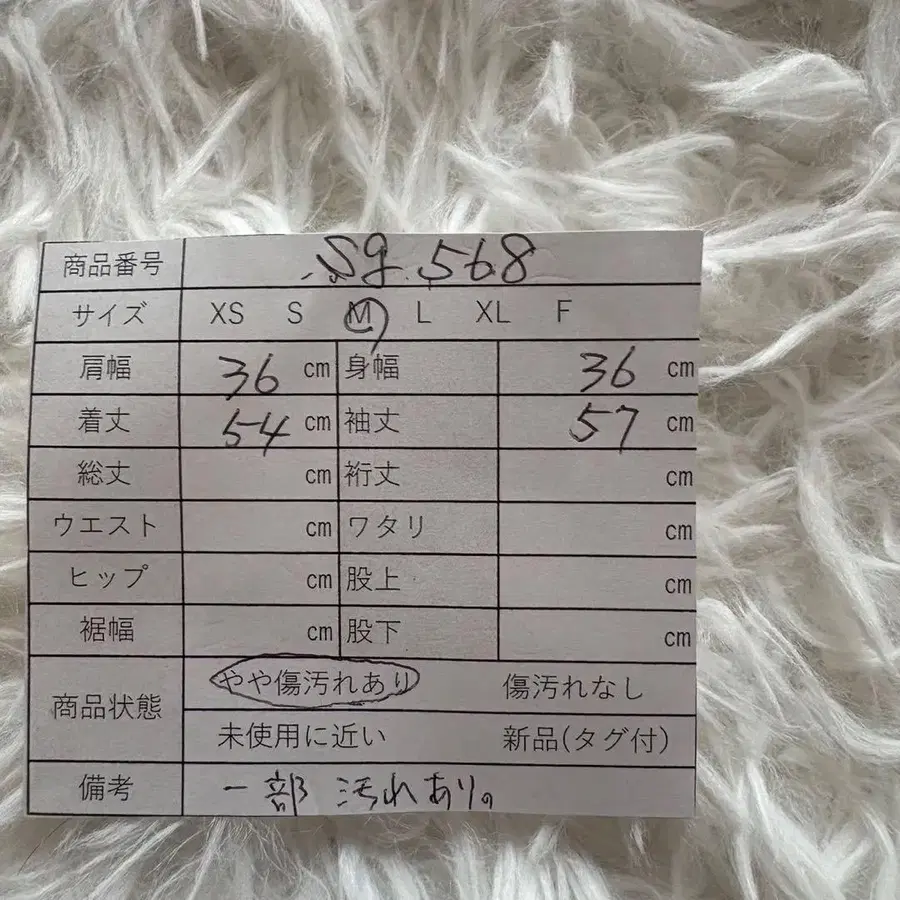 商品番号 Sg.568
サイズ XS S M L XL F
肩幅 36 cm 身幅 36 cm
着丈 54 cm 袖丈 57 cm
総丈 cm 裄丈 cm
ウエスト cm ワタリ cm
ヒップ cm 股上 cm
裾幅 cm 股下 cm
商品状態 やや傷汚れあり 傷汚れなし
未使用に近い 新品(タグ付)
備考 一部汚れあり。